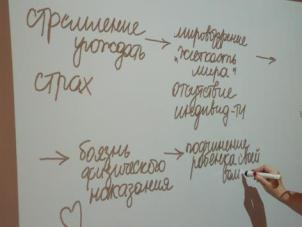 стремление
угождать
страх
мировоззрение
"жесткость
мира"
отсутствие
индивид-ти
боязнь
физического
наказания
подчинение
ребенка своей